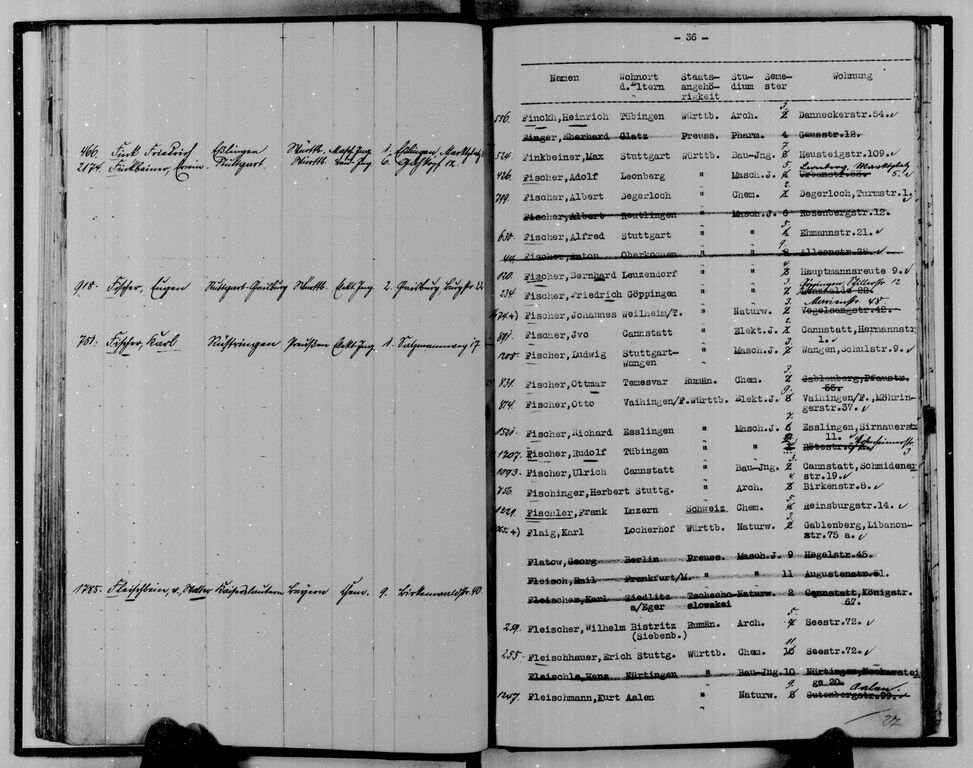 466. Fink Friedrich Eßlingen Württb. Masch.Ing. 1. Eßlingen, Marktplatz
2174. Finkbeiner, Erwin Stuttgart Württb. 6.
918. Fischer, Eugen Stuttgart-Gaisburg Württb. Elekt.Ing. 2. Gaisburg, Burgstr. 22
751. Fischer, Karl Rüstringen Preußen Elekt.Ing. 1. Salzmannweg 17
1785. v. Kaiserslautern Bayern Chem. 9. Birkenwaldstr. 40
- 36 -
Namen Wohnort Staats- Stu- Seme- Wohnung
d.Eltern angehö- dium ster
rigkeit
3.
556. Finckh,Heinrich Tübingen Württb. Arch. 2 Danneckerstr.54.
Finger,Eberhard Glatz Preuss. Pharm. 4 Gausstr.12.
7.
524. Finkbeiner,Max Stuttgart Württb. Bau-Jng. 6 Heusteigstr.109.
5. Marktplatz
426. Fischer,Adolf Leonberg " Masch.J. 4 Urbanstr.53. 5.
2.
749. Fischer,Albert Degerloch " Chem. Degerloch,Turmstr.1.
Fischer,Albert Reutlingen " Masch.J. 6 Rosenbergstr.12.
5.
630. Fischer,Alfred Stuttgart " " 4 Ehmannstr.21.
9.
Fischer,Anton Oberkochen " " 8 Allenstr.28.
4
820. Fischer,Bernhard Leuzendorf " " Hauptmannsreute 9.
3 Göppingen, Schillerstr 12
234. Fischer,Friedrich Göppingen " " 2
3. Marienstr 48.
Fischer,Johannes Weilheim/T. " Naturw. 2 Vogelsangstr.42.
2.
891. Fischer,Jvo Cannstatt " Elekt.J. Cannstatt,Hermannstr
3. 1.
1208. Fischer,Ludwig Stuttgart- " Masch.J. 2 Wangen,Schulstr.9.
Wangen
3.
831. Fischer,Ottmar Temesvar Rumän. Chem. 2 Gablenberg,Pfaustr.
9. 55.
874. Fischer,Otto Vaihingen/F. Württb. Elekt.J. 8 Vaihingen/F.,Möhrin-
gerstr.37.
7.
1521. Fischer,Richard Esslingen " Masch.J. 6 Esslingen,Sirnauerstr
11.
1707. Fischer,Rudolf Tübingen " " 3
3.
1093. Fischer,Ulrich Cannstatt " Bau-Jng. 2 Cannstatt,Schmidener
4 str.19.
756. Fischinger,Herbert Stuttg. " Arch. Birkenstr.8.
5.
1229. Fischler,Frank Luzern Schweiz Chem. 4 Reinsburgstr.14.
3.
+) Flaig,Karl Locherhof Württb. Naturw. 2 Gablenberg,Libanon-
str.75 a.
Flatow,Georg Berlin Preuss. Masch.J. 9 Hegelstr.45.
Fleisch,Emil Frankfurt/M. " " 11 Augustenstr.51.
Fleischer,Karl Ziedlitz Tschecho- Naturw. 2 Cannstatt,Königstr.
a/Eger slowakei 67.
5.
259. Fleischer,Wilhelm Bistritz Rumän. Arch. 4 Seestr.72.
(Siebenb.)
11
255. Fleischhauer,Erich Stuttg. Württb. Chem. 10 Seestr.72.
Fleischle,Hans Nürtingen " Bau-Jng. 10 Nürtingen,Neckarstei
ge 20.
9. Aalen.
1247. Fleischmann,Kurt Aalen " Naturw. 8 Gutenbergstr.99.